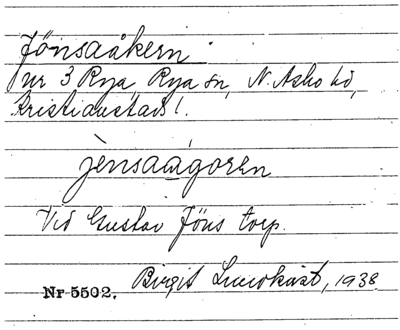 Jönsaåkern
nr 3 Rya, Rya sn, N. Åsbo hd,
Kristianstads l.
jènsaågorεn
Vid Gustav Jöns torp.
Birgit Lindkvist, 1938
Nr 5502.